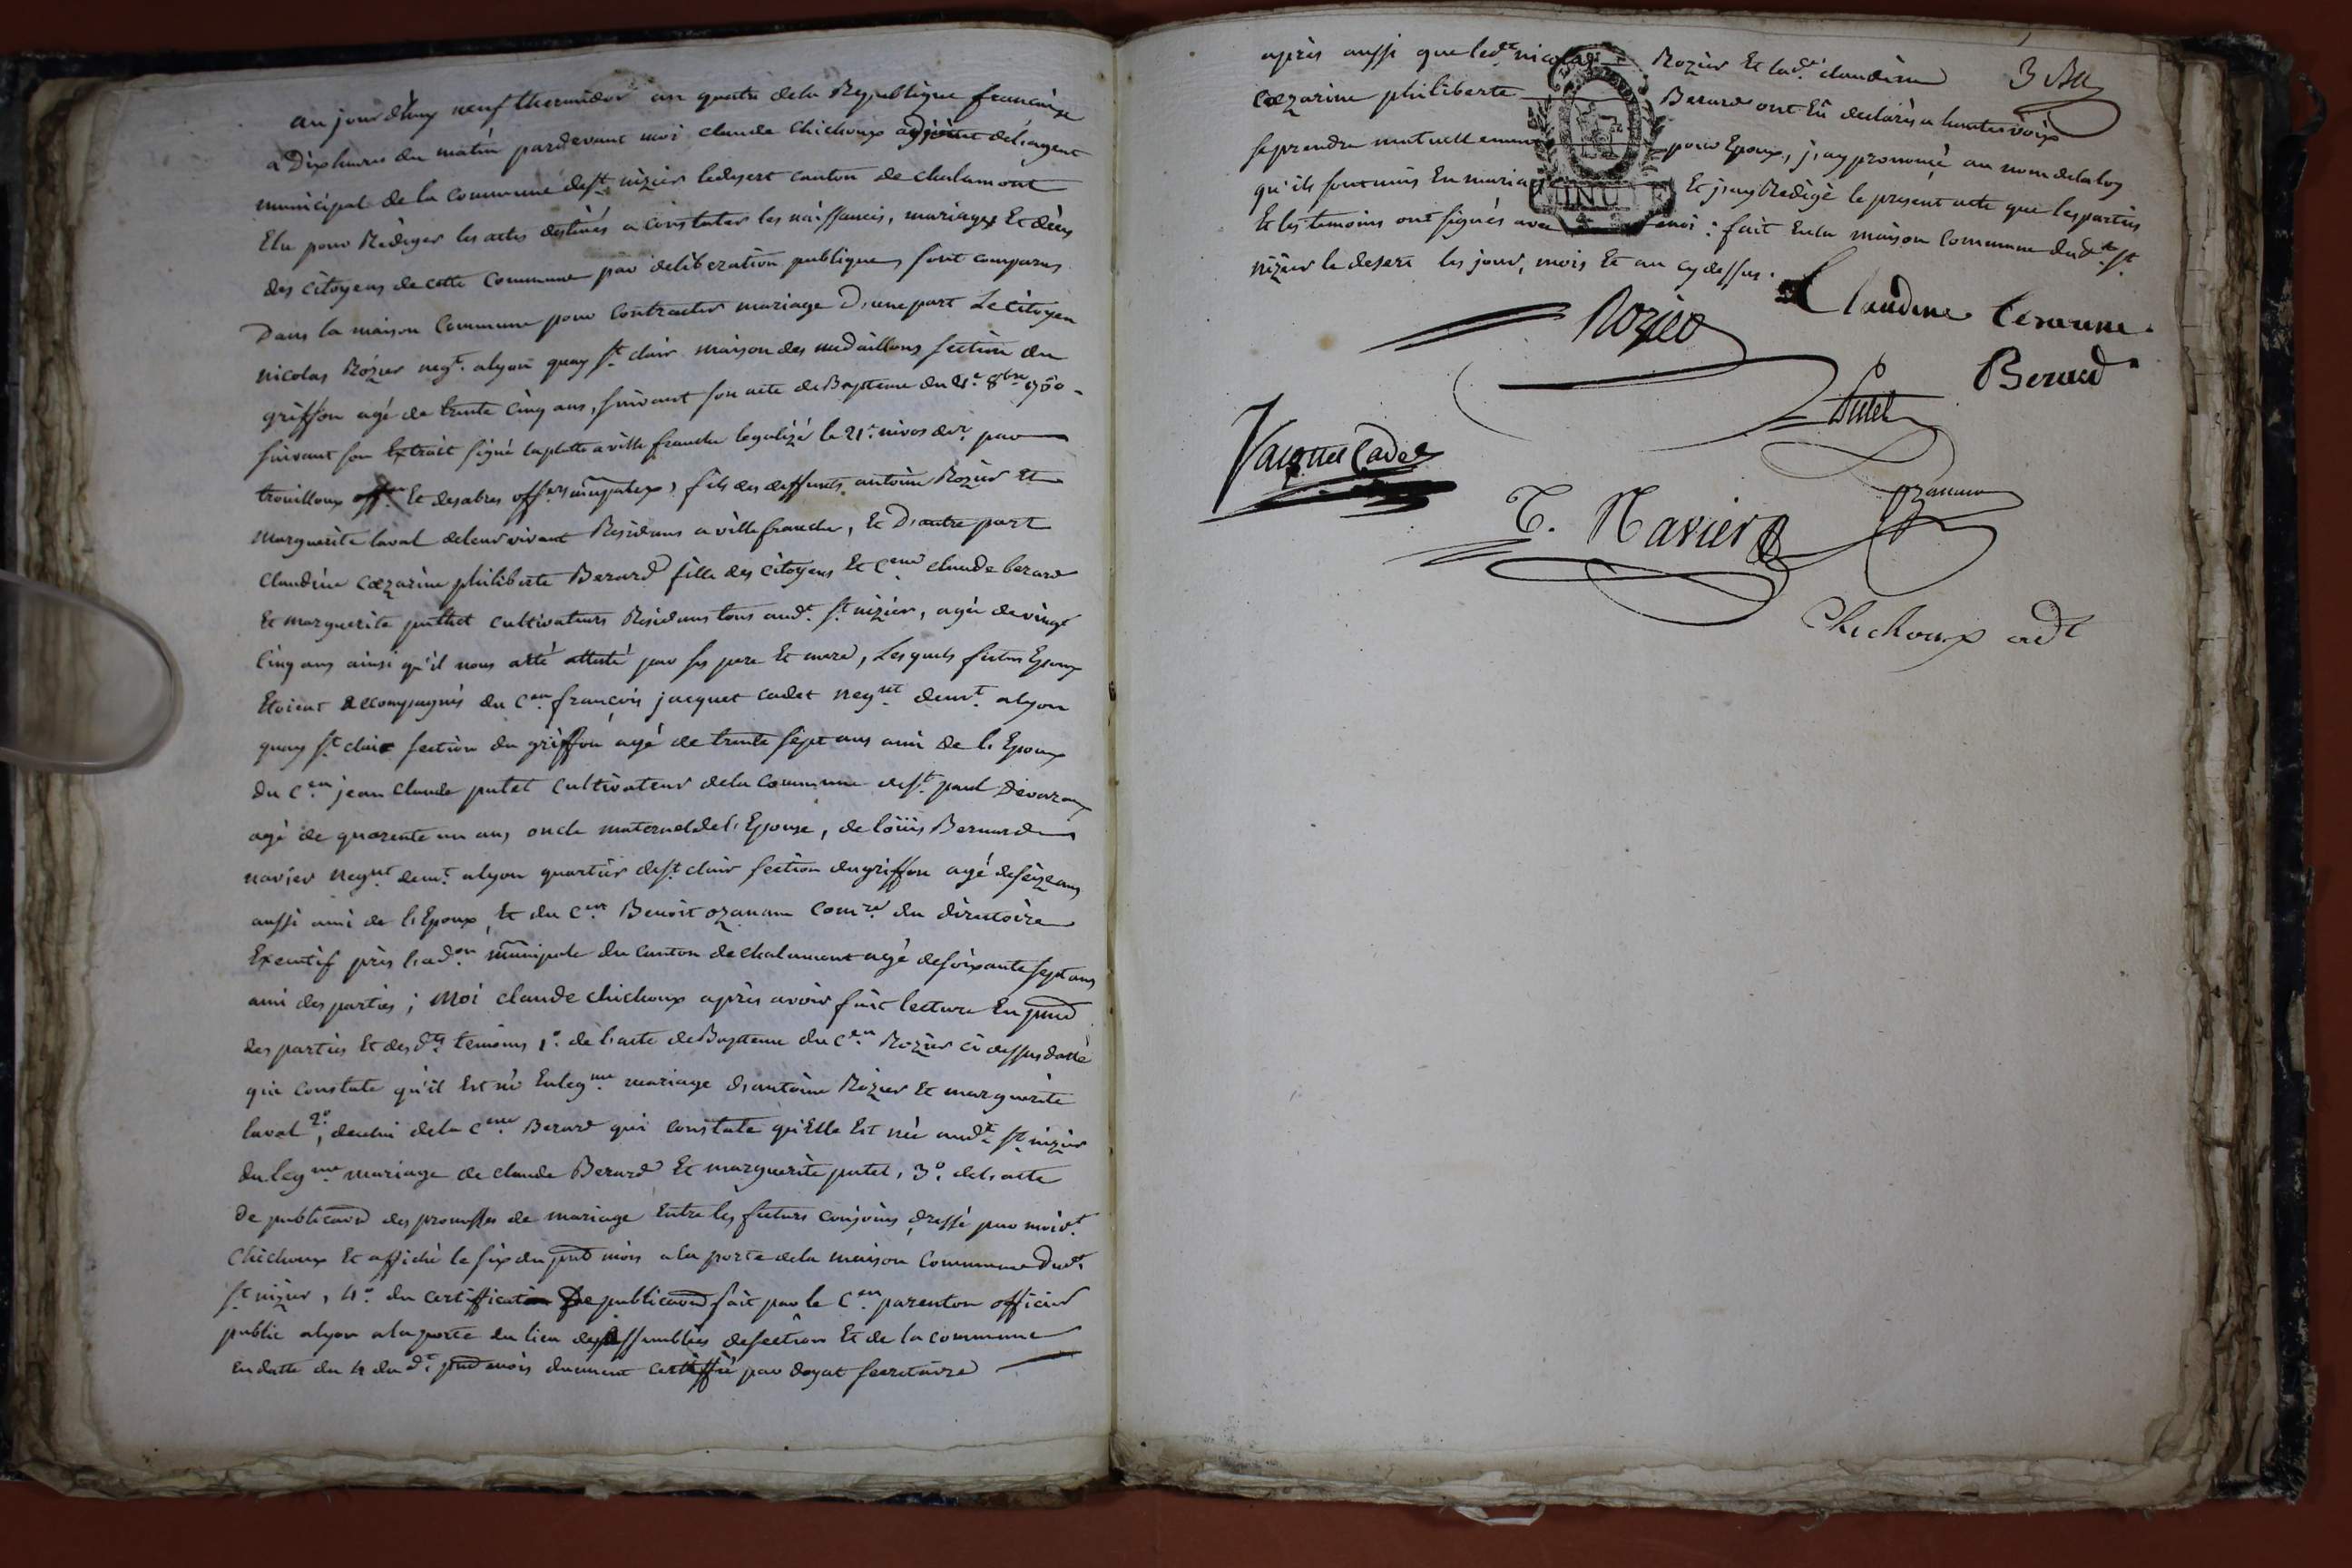 aujourd'huy neuf thermidor an quatre de la Republique francoise
a Dix heures du matin pardevant moi claude Chichoux adjoint de l'agent
municipal de la Commune de St. nizier le desert canton de chalamont
Elu pour Rédiger les actes destinés a constater les naissances, mariages Et décès
des citoyens de cette Commune par deliberation publique, sont comparus
Dans la maison Commune pour Contracter mariage D'une part Le Citoyen
nicolas Rozier negt. a lyon quay St. clair maison des medaillons section du
griffon agé de trente cinq ans, suivant son acte de Baptteme du 21e 8bre 1760
suivant son Extrait signé laplatte a ville franche legalizé le 21e. nivos der. par
trouilloux Et desabres offers municipaux, fils des deffunts antoine Rozier Et
marguerite laval de leur vivant Residans a villefranche, Et D'autre part
Claudine Cæzarine philiberte Berard fille des citoyens Et Cene claude berard
Et marguerite puthet cultivateurs Residans tous audt. St. nizier, agée de vingt
Cinq ans ainsi qu'il nous a été attesté par ses pere Et mere, Lesquels futurs Epoux
Etoient accompagnés du Cen. francois jacquet cadet negnt. demt. a lyon
quay St. clair section du griffon agé de trente sept ans ami de l'Epoux
du Cen. jean Claude putet Cultivateur de la Commune de St. paul Devarax
agé de quarente un ans oncle maternel de l'Epouse, de loüis Bernard
navier negnt. demt. a lyon quartier de St. clair section du griffon agé de seize ans
aussi ami de l'Epoux, Et du Cen. Benoit ozanam Comre. du directoire
Executif près l'adon. municipale du canton de chalamont agé de soixante sept ans
ami des parties; moi claude chichoux après avoir fait lecture En prnce
des parties Et des dts. temoins 1o. de l'acte de Baptteme du Cen Rozier ci dessus datté
qui constate qu'il Est né En legme. mariage d'antoine Rozier Et marguerite
laval 2o., de celui de la Cene. Berard qui constate qu'Elle Est née audt. St. nizier
du legme. mariage de claude Berard Et marguerite putet, 3o. de l'acte
de publicaon des promesses de mariage Entre les futurs conjoins dressé par moi dt.
Chichoux Et affiché le six du prnt mois a la porte de la maison Commune dudt.
St. nizier, 4o. du certificat de publicaon fait par le Cen. parenton officier
public a lyon a la porte du lieu des assemblées de section Et de la commune
en datte du 4 du dt. prnt mois duement certiffié par doyat secretaire
après aussi que ledt. nicolas Rozier Et ladte. claudine
Cæzarine philiberte Berard ont Eû declarés a hautes voix
se prendre mutuellement pour Epoux, j'ay prononcé au nom de la loy
qu'ils sont unis En mariage Et j'ay Redigé le present acte que les parties
Et les temoins ont signés avec moi: fait En la maison Commune dudt. St.
nizier le desert les jour, mois Et an cy dessus.
MINUTE
Rozier
Claudine Cesarine
Berard
Putet
Jacquet Cadet
Ozanam
B. Navier
Chichoux adt